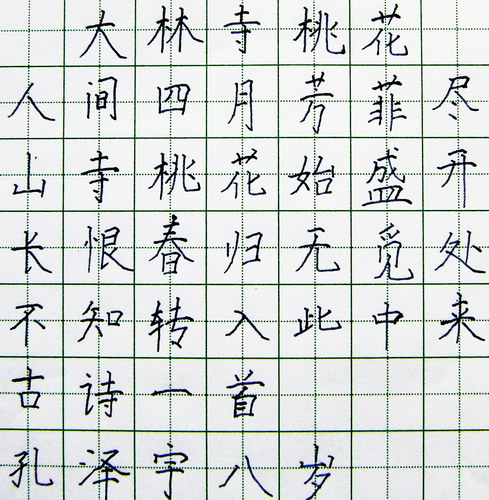 大林寺桃花
人间四月芳菲尽
山寺桃花始盛开
长恨春归无觅处
不知转入此中来
古诗一首
孔泽宇八岁